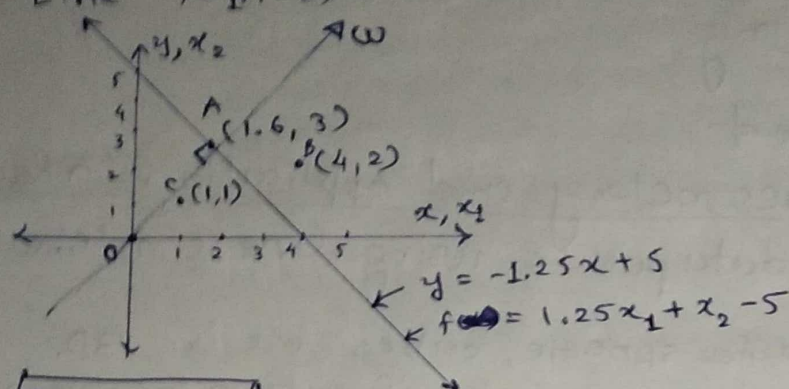 y, x₂
ω
5
4
3
2
1
A
(1.6, 3)
B
(4, 2)
C
(1,1)
x, x₁
0
1 2 3 4 5
y = -1.25x + 5
f = 1.25x₁ + x₂ - 5